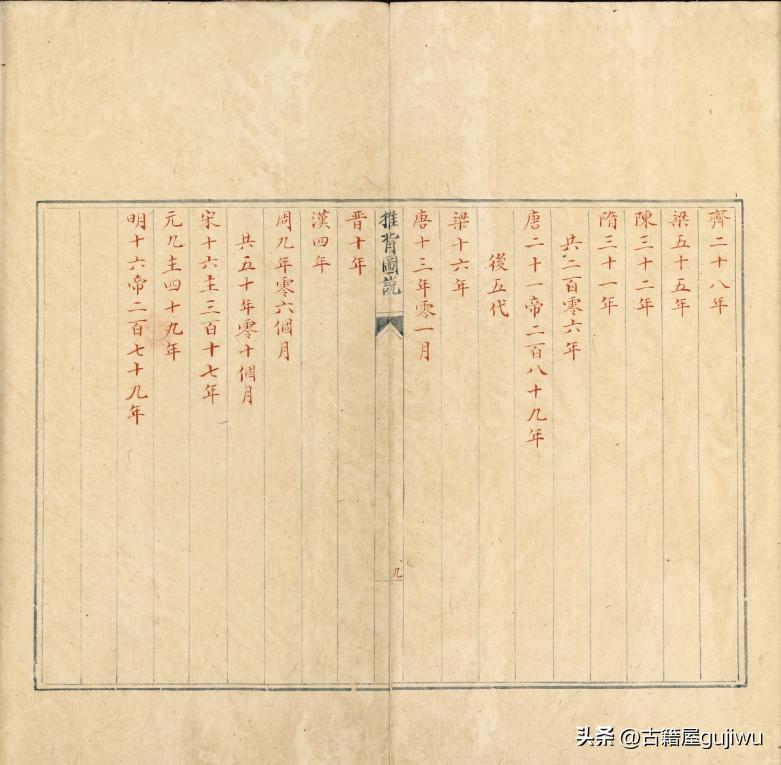 齊二十八年
梁五十五年
陳三十二年
隋三十一年
共二百零六年
唐二十一帝二百八十九年
後五代
梁十六年
唐十三年零一月
推背圖說
九
晋十年
漢四年
周九年零六個月
共五十年零十個月
宋十六主三百十七年
元九主四十九年
明十六帝二百七十九年
头条 @古籍屋gujiwu